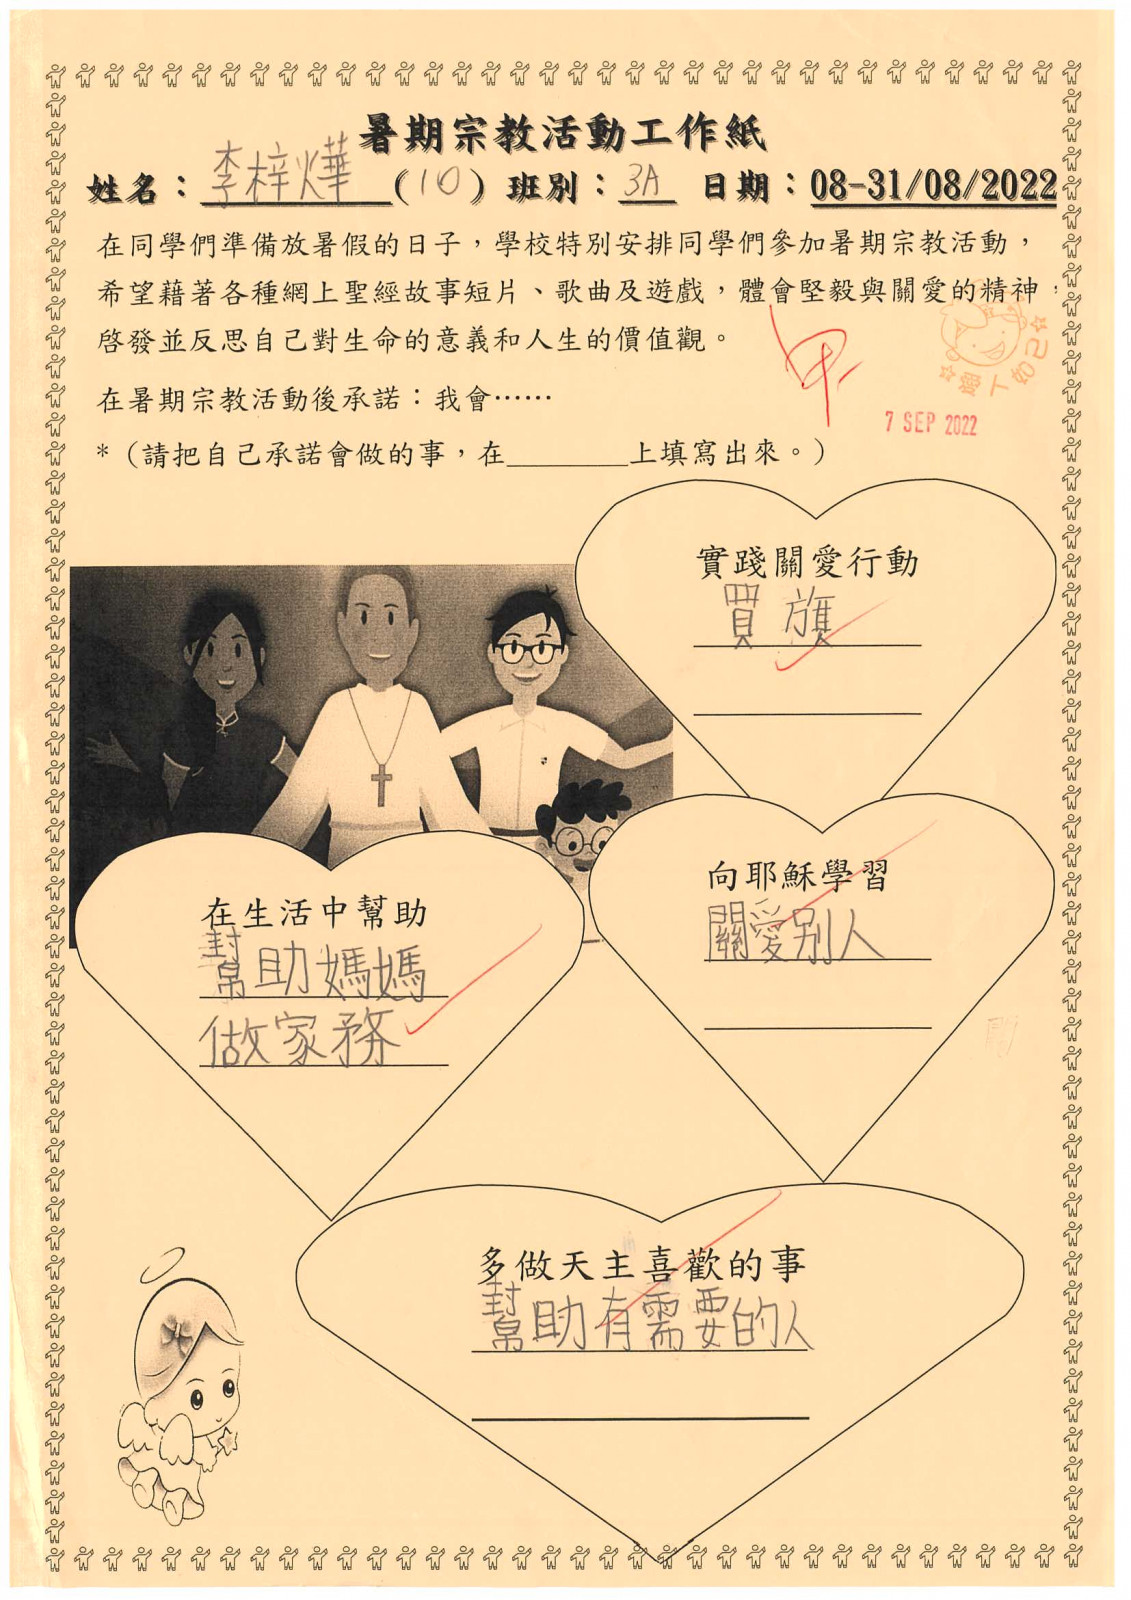 暑期宗教活動工作紙
姓名：李梓燁（10）班別：3A 日期：08-31/08/2022
在同學們準備放暑假的日子，學校特別安排同學們參加暑期宗教活動，
希望藉著各種網上聖經故事短片、歌曲及遊戲，體會堅毅與關愛的精神，
啓發並反思自己對生命的意義和人生的價值觀。
甲
愛人如己
7 SEP 2022
在暑期宗教活動後承諾：我會……
*（請把自己承諾會做的事，在________上填寫出來。）
實踐關愛行動
買旗
向耶穌學習
關愛别人
在生活中幫助
幫助媽媽
做家務
多做天主喜歡的事
幫助有需要的人